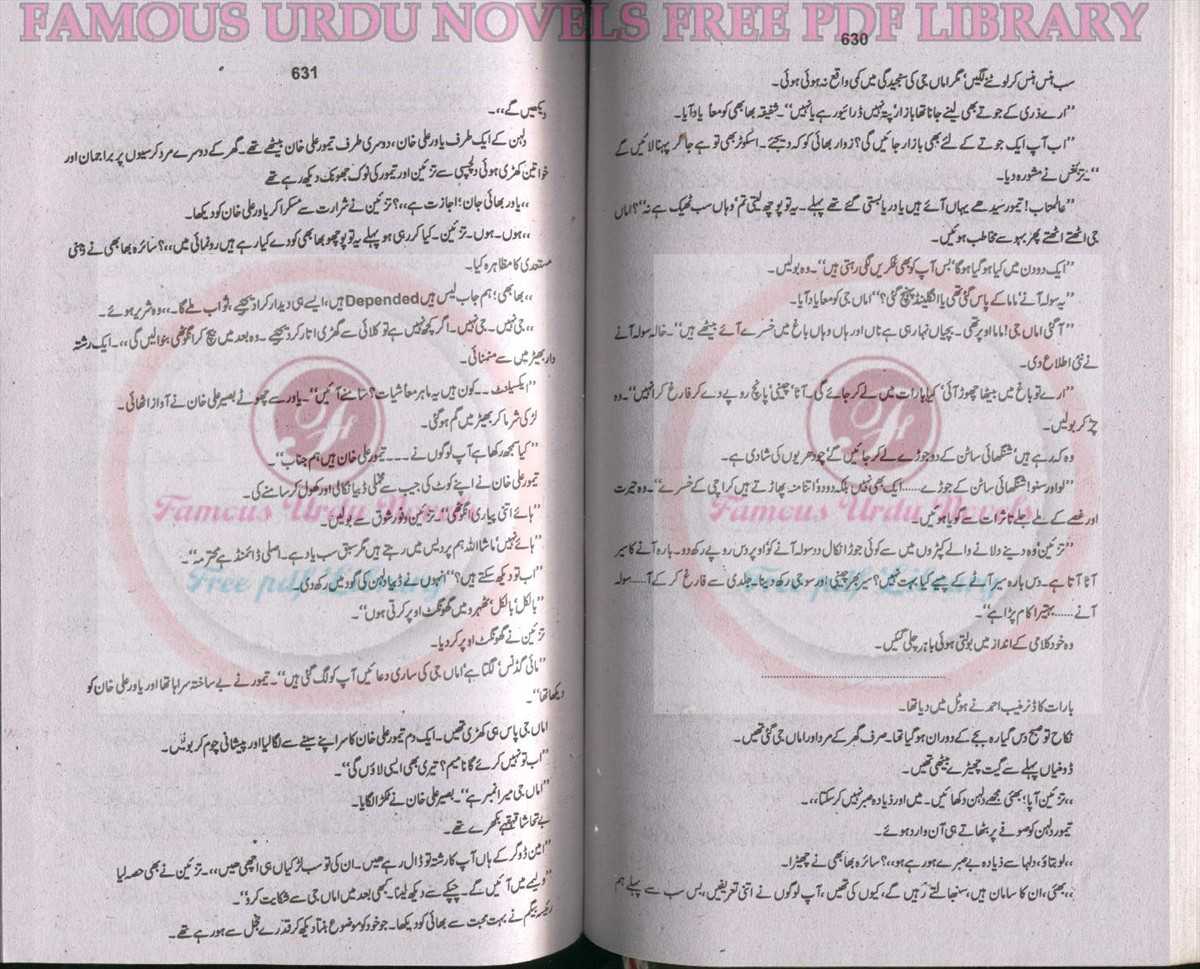 FAMOUS URDU NOVELS FREE PDF LIBRARY
630
سب ہنس ہنس کر لوٹنے لگیں' مگر اماں جی کی سنجیدگی میں کمی واقع نہ ہوئی ہوئی۔
''ارے ذری کے جوتے بھی لینے جانا تھا بازار' پتہ نہیں ڈرائیور ہے یا نہیں''۔ شفیقہ بھابھی کو معاً یاد آیا۔
''اب آپ ایک جوتے کے لئے بھی بازار جائیں گی؟ زوار بھائی کو کہہ دیجئے۔ اسکوٹر بھی تو ہے جا کر پہنا لائیں گے
''۔ تزئین نے مشورہ دیا۔
''عالمتاب! تیمور سیدھے یہاں آئے ہیں یا دریا بستی گئے تھے پہلے۔ یہ تو پوچھ لیتی تم' وہاں سب ٹھیک ہے نہ''؟ اماں
جی اٹھتے اٹھتے پھر بہو سے مخاطب ہوئیں۔
''ایک دو دن میں کیا ہو گیا ہو گا' بس آپ کو بھی فکریں لگی رہتی ہیں''۔ وہ بولیں۔
''یہ سولہ آنے' ماما کے پاس گئی تھی یا انگلینڈ پہنچ گئی؟'' اماں جی کو معاً یاد آیا۔
''آ گئی اماں جی! ماما اوپر تھی۔ بچیاں نہا رہی ہے ناں اور ہاں وہاں باغ میں خسرے آئے بیٹھے ہیں''۔ خالہ سولہ آنے
نے نئی اطلاع دی۔
''ارے تو باغ میں بیٹھا چھوڑ آئی' کیا بارات میں لے کر جائے گی۔ آٹا' چینی' پانچ روپے دے کر فارغ کر انہیں''۔ وہ
چڑ کر بولیں۔
وہ کہہ رہے ہیں' شنگھائی ساٹن کے دو جوڑے لے کر جائیں گے' چودھریوں کی شادی ہے۔
''لو اور سنو! شنگھائی ساٹن کے جوڑے...... ایک بھی نہیں بلکہ دو دو' اتنا منہ پھاڑتے ہیں کراچی کے خسرے''۔ وہ حیرت
اور غصے کے ملے جلے تاثرات سے گویا ہوئیں۔
''تزئین' وہ دینے دلانے والے کپڑوں میں سے کوئی جوڑا نکال دو سولہ آنے کو' اوپر دس روپے رکھ دو۔ بارہ آنے کا سیر
آٹا آتا ہے۔ دس بارہ سیر آٹے کے پیسے کیا بہت ہیں؟ سیر بھر چینی اور سوجی رکھ دینا۔ جلدی سے فارغ کر کے آ..... سولہ
آنے...... بہتیرا کام پڑا ہے''۔
وہ خود کلامی کے انداز میں بولتی ہوئی باہر چلی گئیں۔
بارات کا ڈنر منیب احمد نے ہوٹل میں دیا تھا۔
نکاح تو صبح دس گیارہ بجے کے دوران ہو گیا تھا۔ صرف گھر کے مرد اور اماں جی گئی تھیں۔
ڈومنیاں پہلے سے گیت چھیڑے بیٹھی تھیں۔
،،تزئین آپا؛ بھئی مجھے دلہن دکھائیں۔ میں اور زیادہ صبر نہیں کر سکتا،،۔
تیمور دلہن کو صوفے پر بٹھاتے ہی آن وارد ہوئے۔
،،لو بتاؤ، دلہا سے زیادہ بے صبرے ہو رہے ہو،،؟ سائرہ بھابھی نے چھیڑا۔
،،بھئی، ان کا سامان ہیں، سنبھالتے رہیں گے، کیوں کی تھیں، آپ لوگوں نے اتنی تعریفیں، بس سب سے پہلے ہم
631
دیکھیں گے،،۔
دلہن کے ایک طرف یاور علی خان، دوسری طرف تیمور علی خان بیٹھے تھے۔ گھر کے دوسرے مرد کرسیوں پر براجمان اور
خواتین کھڑی ہوئی دلچسپی سے تزئین اور تیمور کی نوک جھونک دیکھ رہے تھے
،،یاور بھائی جان؛ اجازت ہے،،؟ تزئین نے شرارت سے مسکرا کر یاور علی خان کو دیکھا۔
،،ہوں۔ ہوں۔ تزئین۔ کیا کر رہی ہو پہلے یہ تو پوچھو بھابھی کو دے کیا رہے ہیں رونمائی میں،،؟ سائرہ بھابھی نے اپنی
مستعدی کا مظاہرہ کیا۔
،،بھابھی؛ ہم جاب لیس ہیں Depended ہیں، ایسے ہی دیدار کرا دیجیے، ثواب ملے گا۔،، وہ شریر ہوئے۔
،،جی نہیں۔ جی نہیں۔ اگر کچھ نہیں ہے تو کلائی سے گھڑی اتار کر دیجیے۔ وہ بعد میں بیچ کر انگوٹھی بنوا لیں گی،،۔ ایک رشتہ
دار بھیڑ میں سے منمنائی۔
''ایکسیلنٹ ۔۔ کون ہیں یہ ماہر معاشیات؟ سامنے آئیں''۔ یاور سے چھوٹے بصیر علی خان نے آواز اٹھائی۔
لڑکی شرما کر بھیڑ میں گم ہو گئی۔
''کیا سمجھ رکھا ہے آپ لوگوں نے ۔۔۔ تیمور علی خان ہیں ہم جناب''۔
تیمور علی خان نے اپنے کوٹ کی جیب سے مخملی ڈبیا نکالی اور کھول کر سامنے کی۔
''ہائے اتنی پیاری انگوٹھی''۔ تزئین وفور شوق سے بولیں۔
''ہائے نہیں' ماشاءاللہ ہم پردیس میں رہتے ہیں مگر سبق سب یاد ہے۔ اصلی ڈائمنڈ ہے محترمہ''۔
''اب تو دیکھ سکتے ہیں؟'' انہوں نے ڈبیا دلہن کی گود میں رکھ دی۔
''بالکل' بالکل' ٹھہرو میں گھونگٹ اوپر کرتی ہوں''۔
تزئین نے گھونگٹ اوپر کر دیا۔
''مائی گڈنس' لگتا ہے' اماں جی کی ساری دعائیں آپ کو لگ گئی ہیں''۔ تیمور نے بے ساختہ سراہا تھا اور یاور علی خان کو
دیکھا تھا''۔
اماں جی پاس ہی کھڑی تھیں۔ ایک دم تیمور علی خان کا سر اپنے سینے سے لگا لیا اور پیشانی چوم کر بولیں۔
''اب تو نہیں کرے گا نا میم؟ تیری بھی ایسی لاؤں گی''۔
''اماں جی میرا نمبر ہے''۔ بصیر علی خان نے ٹکڑا لگایا۔
بے تحاشا قہقہے بکھرے تھے۔
''امین ڈوگر کے ہاں آپ کا رشتہ تو ڈال رہے ھیں۔ ان کی تو سب لڑکیاں ہی اچھی ھیں،،۔ تزئین نے بھی حصہ لیا
''ویسے میں آئیں گے۔ چپکے سے دیکھ لینا۔ کبھی بعد میں اماں جی سے شکایت کرو''۔
رئیسہ بیگم نے بہت محبت سے بھائی کو دیکھا۔ جو خود کو موضوع بنتا دیکھ کر قدرے خجل سے ہو رہے تھے۔
Famous Urdu Novels
Free pdf Library
Famous Urdu Novels
Free pdf Library